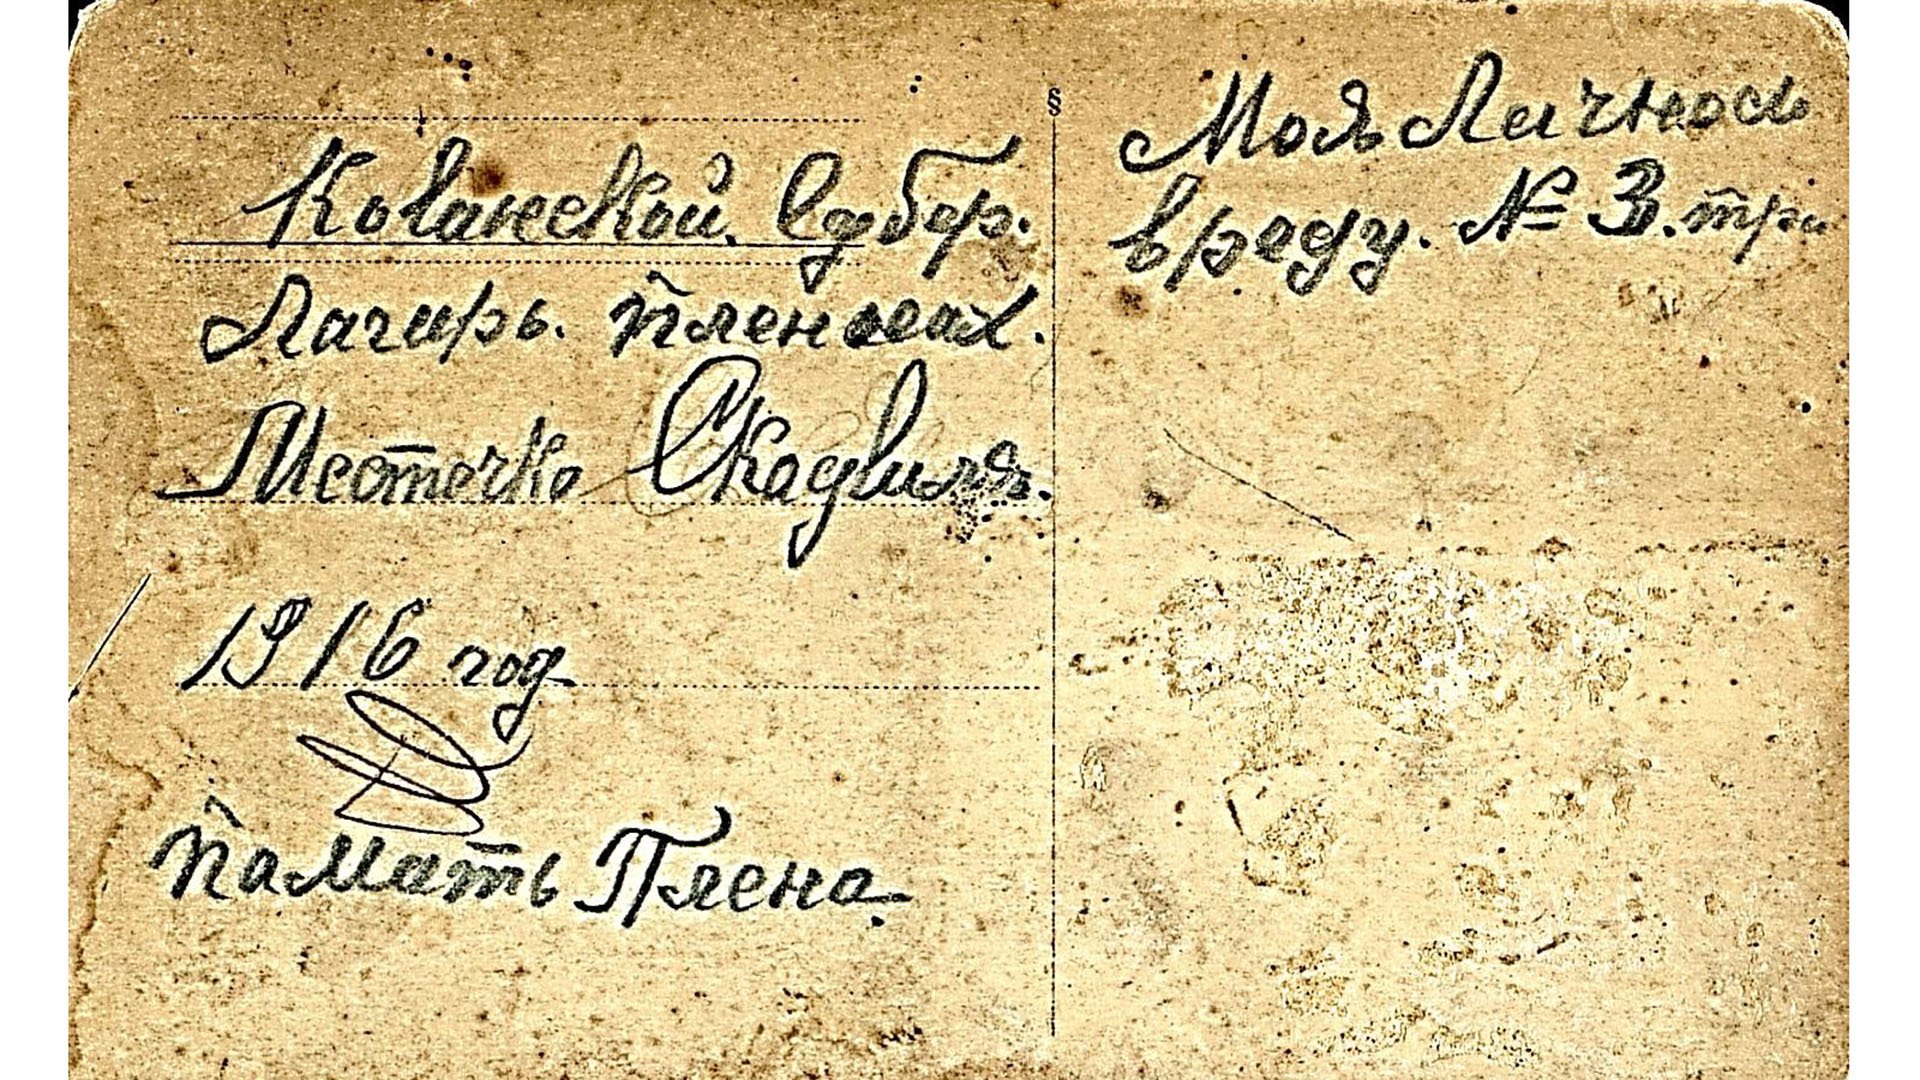 Кованской. Едбер.
Лагирь. пленных.
Местечко Скадвиля.
1916 год
память Плена.
§
Моя Личнось
вряду. № 3. три